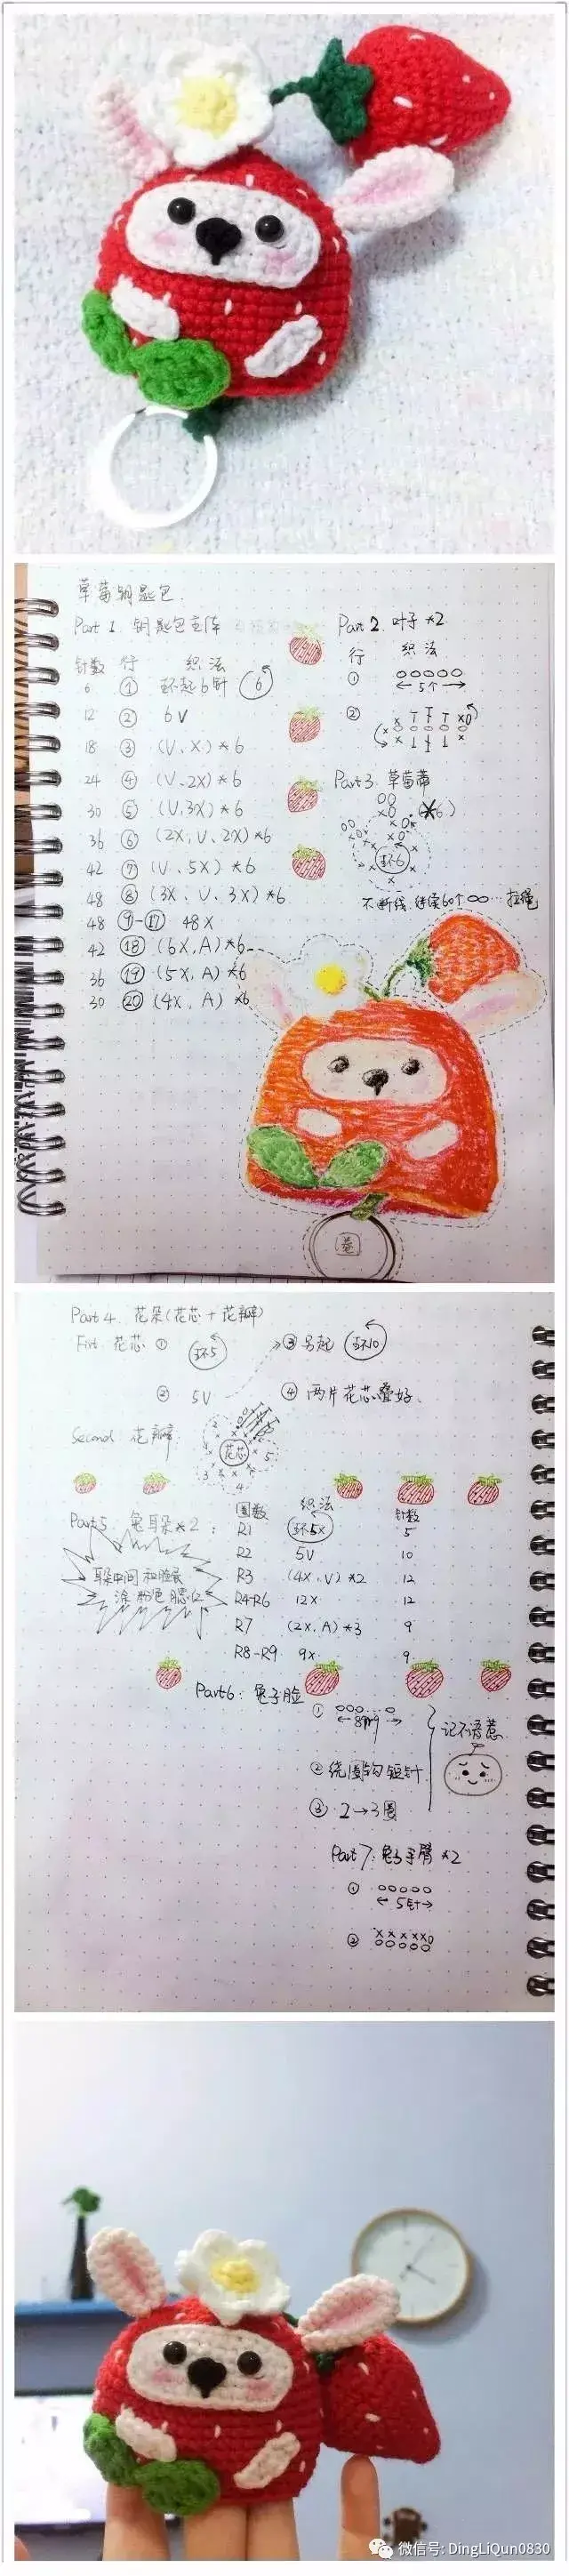 草莓钥匙包
Part 1. 钥匙包主体
针数 行 织法
6 ① 环起6针 6
12 ② 6V
18 ③ (V、X)*6
24 ④ (V、2X)*6
30 ⑤ (V,3X)*6
36 ⑥ (2X,V、2X)*6
42 ⑦ (V、5X)*6
48 ⑧ (3X、V、3X)*6
48 ⑨-⑰ 48X
42 ⑱ (6X,A)*6
36 ⑲ (5X,A)*6
30 ⑳ (4X,A)*6
Part 2. 叶子*2
行 织法
① ooooo
5个
②
Part3. 草莓蒂
环6
不断线.继续60个oo…拉绳
Part 4. 花朵(花芯+花瓣)
First. 花芯 ① 环5
② 5V
③ 另起 环10
④ 两片花芯叠好.
Second. 花瓣
花芯
2
3
4
5
Part5. 兔耳朵*2:
耳朵中间和脸蛋
涂粉色腮红
圈数 织法 针数
R1 环5X 5
R2 5V 10
R3 (4X,V)*2 12
R4-R6 12X 12
R7 (2X,A)*3 9
R8-R9 9X 9
Part6: 兔子脸
① ooo...o
② 绕圈钩短针
③ 2→3圈
记不清惹
Part7: 兔子手臂*2
① ooooo
5针
② xxxxx0
ooooo
微信号: DingLiQun0830